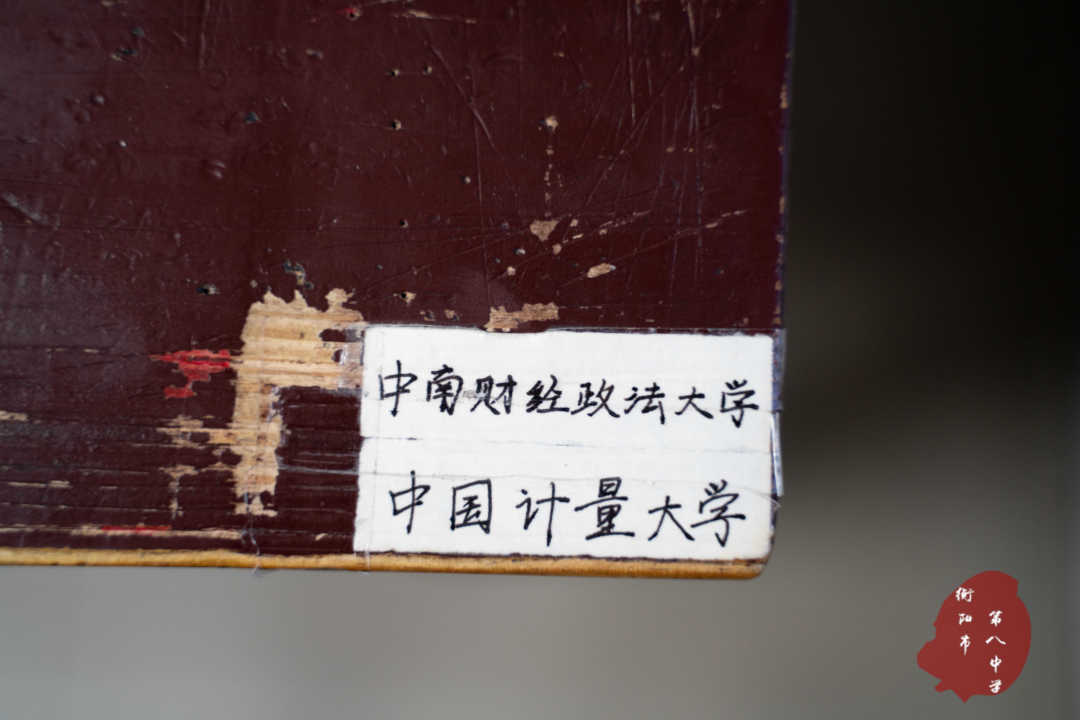 中南财经政法大学
中国计量大学
衡阳市
第八中学